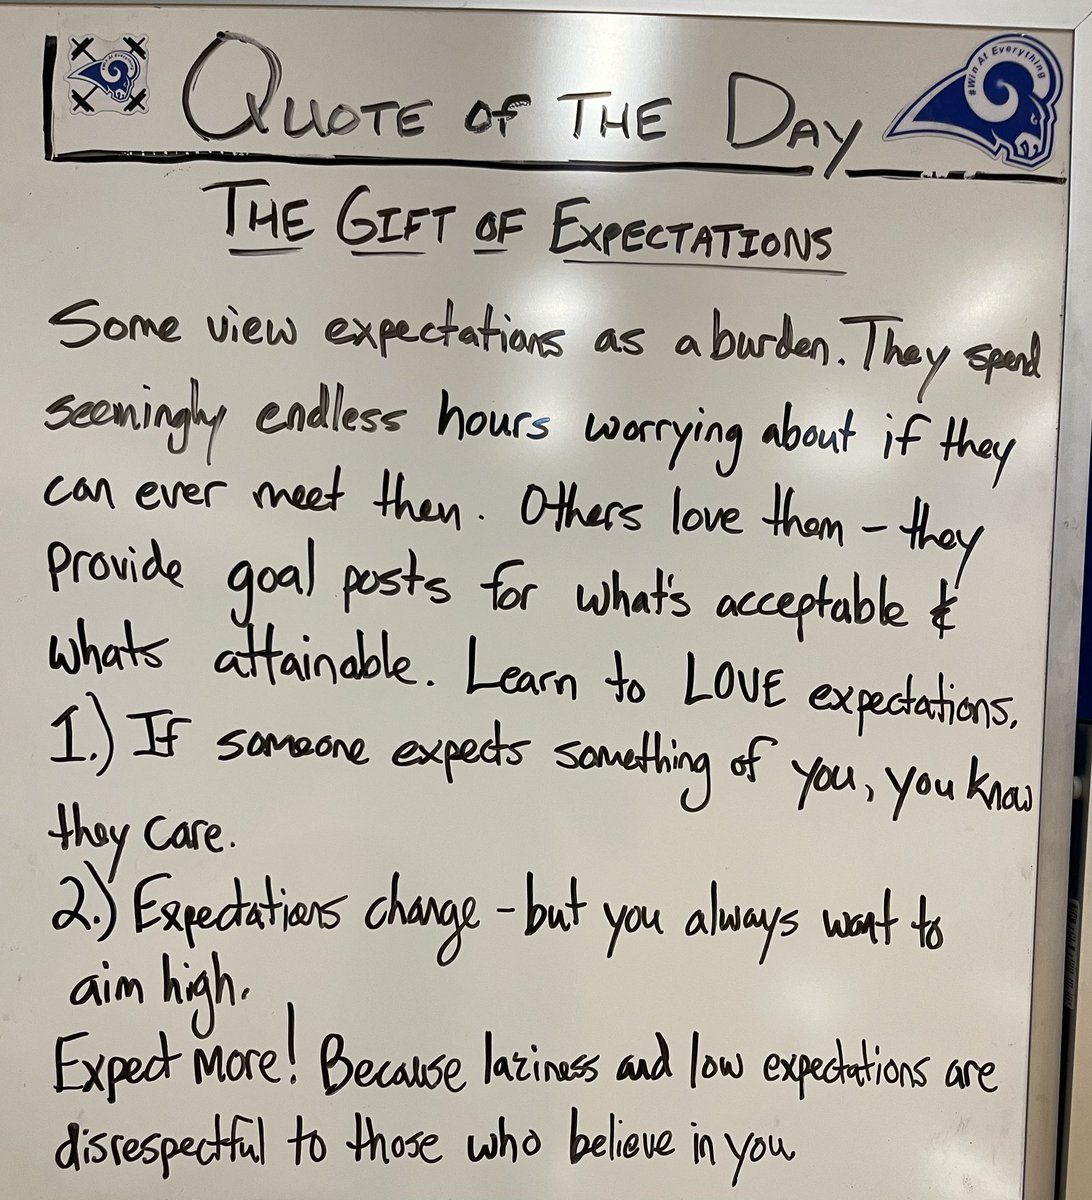 #Win At Everything
QUOTE OF THE DAY
#Win At Everything
THE GIFT OF EXPECTATIONS
Some view expectations as a burden. They spend
seemingly endless hours worrying about if they
can ever meet them. Others love them - they
provide goal posts for what's acceptable &
whats attainable. Learn to LOVE expectations.
1.) If someone expects something of you, you know
they care.
2.) Expectations change - but you always want to
aim high.
Expect More! Because laziness and low expectations are
disrespectful to those who believe in you